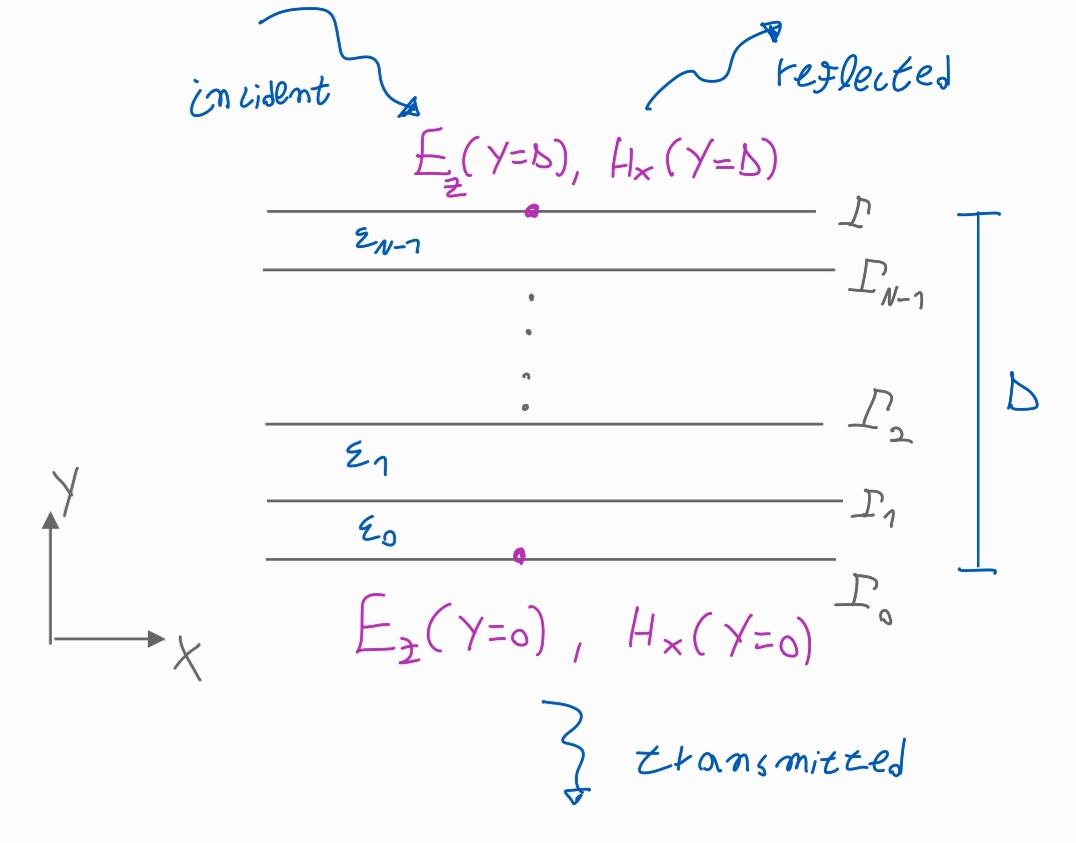 incident
reflected
E_z(Y=D), H_x(Y=D)
Γ
ε_{N-1}
Γ_{N-1}
Γ_2
D
ε_1
Γ_1
ε_0
Γ_0
E_z(Y=0), H_x(Y=0)
Y
X
transmitted